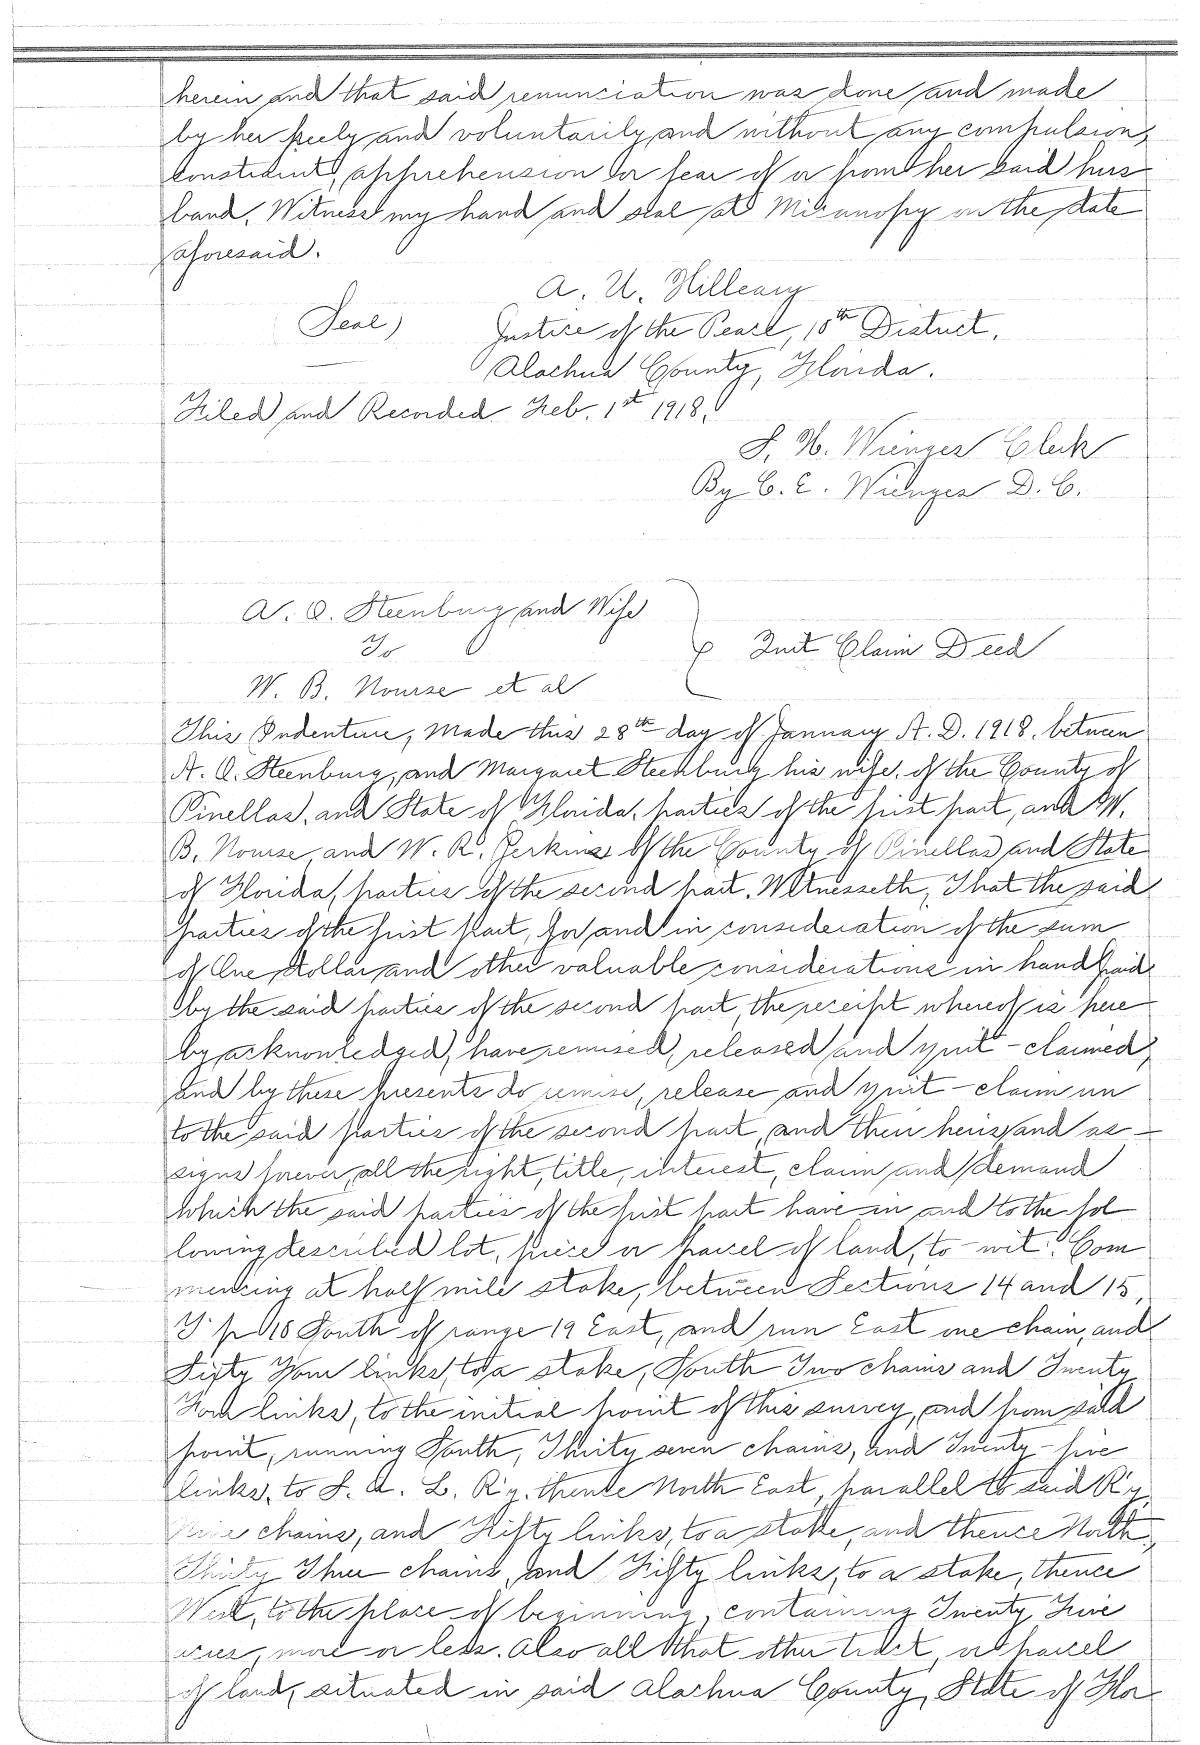 herein and that said renunciation was done and made
by her freely and voluntarily and without any compulsion,
constraint, apprehension or fear of or from her said hus
band. Witness my hand and seal at Micanopy on the date
aforesaid.
A. U. Hilleary
(Seal) Justice of the Peace, 10th District,
Alachua County, Florida.
Filed and Recorded Feb. 1st 1918.
S. H. Wienges Clerk
By C. E. Wienges D. C.
A. O. Steenburg and Wife
To Quit Claim Deed
W. B. Nourse et al
This Indenture, Made this 28th day of January A. D. 1918. between
A. O. Steenburg, and Margaret Steenburg his wife, of the County of
Pinellas, and State of Florida, parties of the first part, and W.
B. Nourse and W. R. Perkins of the County of Pinellas and State
of Florida, parties of the second part. Witnesseth, That the said
parties of the first part, for and in consideration of the sum
of One dollar and other valuable considerations in hand paid
by the said parties of the second part, the receipt whereof is here
by acknowledged, have remised, released and quit-claimed,
and by these presents do remise, release and quit-claim un
to the said parties of the second part, and their heirs and as-
signs forever, all the right, title, interest, claim and demand
which the said parties of the first part have in and to the fol
lowing described lot, piece or parcel of land, to-wit: Com
mencing at half mile stake, between Sections 14 and 15,
T'p 10 South of range 19 East, and run East one chain, and
Sixty Four links, to a stake, South Two chains and Twenty
Four links, to the initial point of this survey, and from said
point, running South, Thirty seven chains, and Twenty-five
links, to S. A. L. R'y. thence North East, parallel to said R'y,
Nine chains, and Fifty links, to a stake, and thence North,
Thirty Three chains, and Fifty links, to a stake, thence
West, to the place of beginning, containing Twenty Five
acres, more or less. Also all that other tract, or parcel
of land, situated in said Alachua County, State of Flor